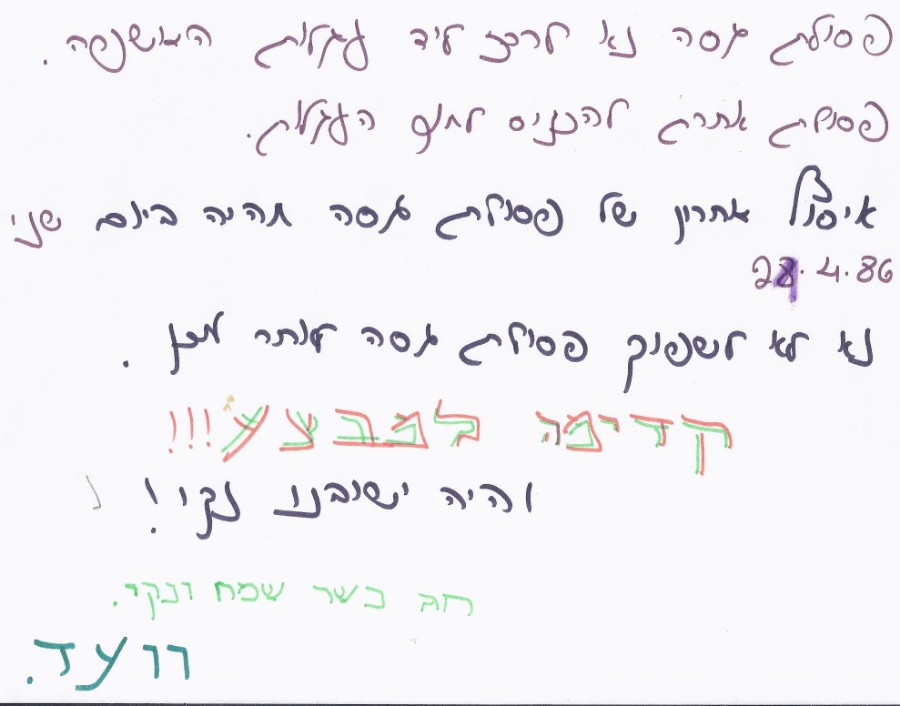 פסולת גסה נא לרכז ליד עגלות האשפה.
פסולת אחרת להכניס לתוך העגלות.
איסוף אחרון של פסולת גסה תהיה ביום שני
28.4.86
נא לא לשפוך פסולת גסה לאחר מכן.
קדימה למבצע!!!
והיה ישובנו נקי!
חג כשר שמח ונקי.
וועד.